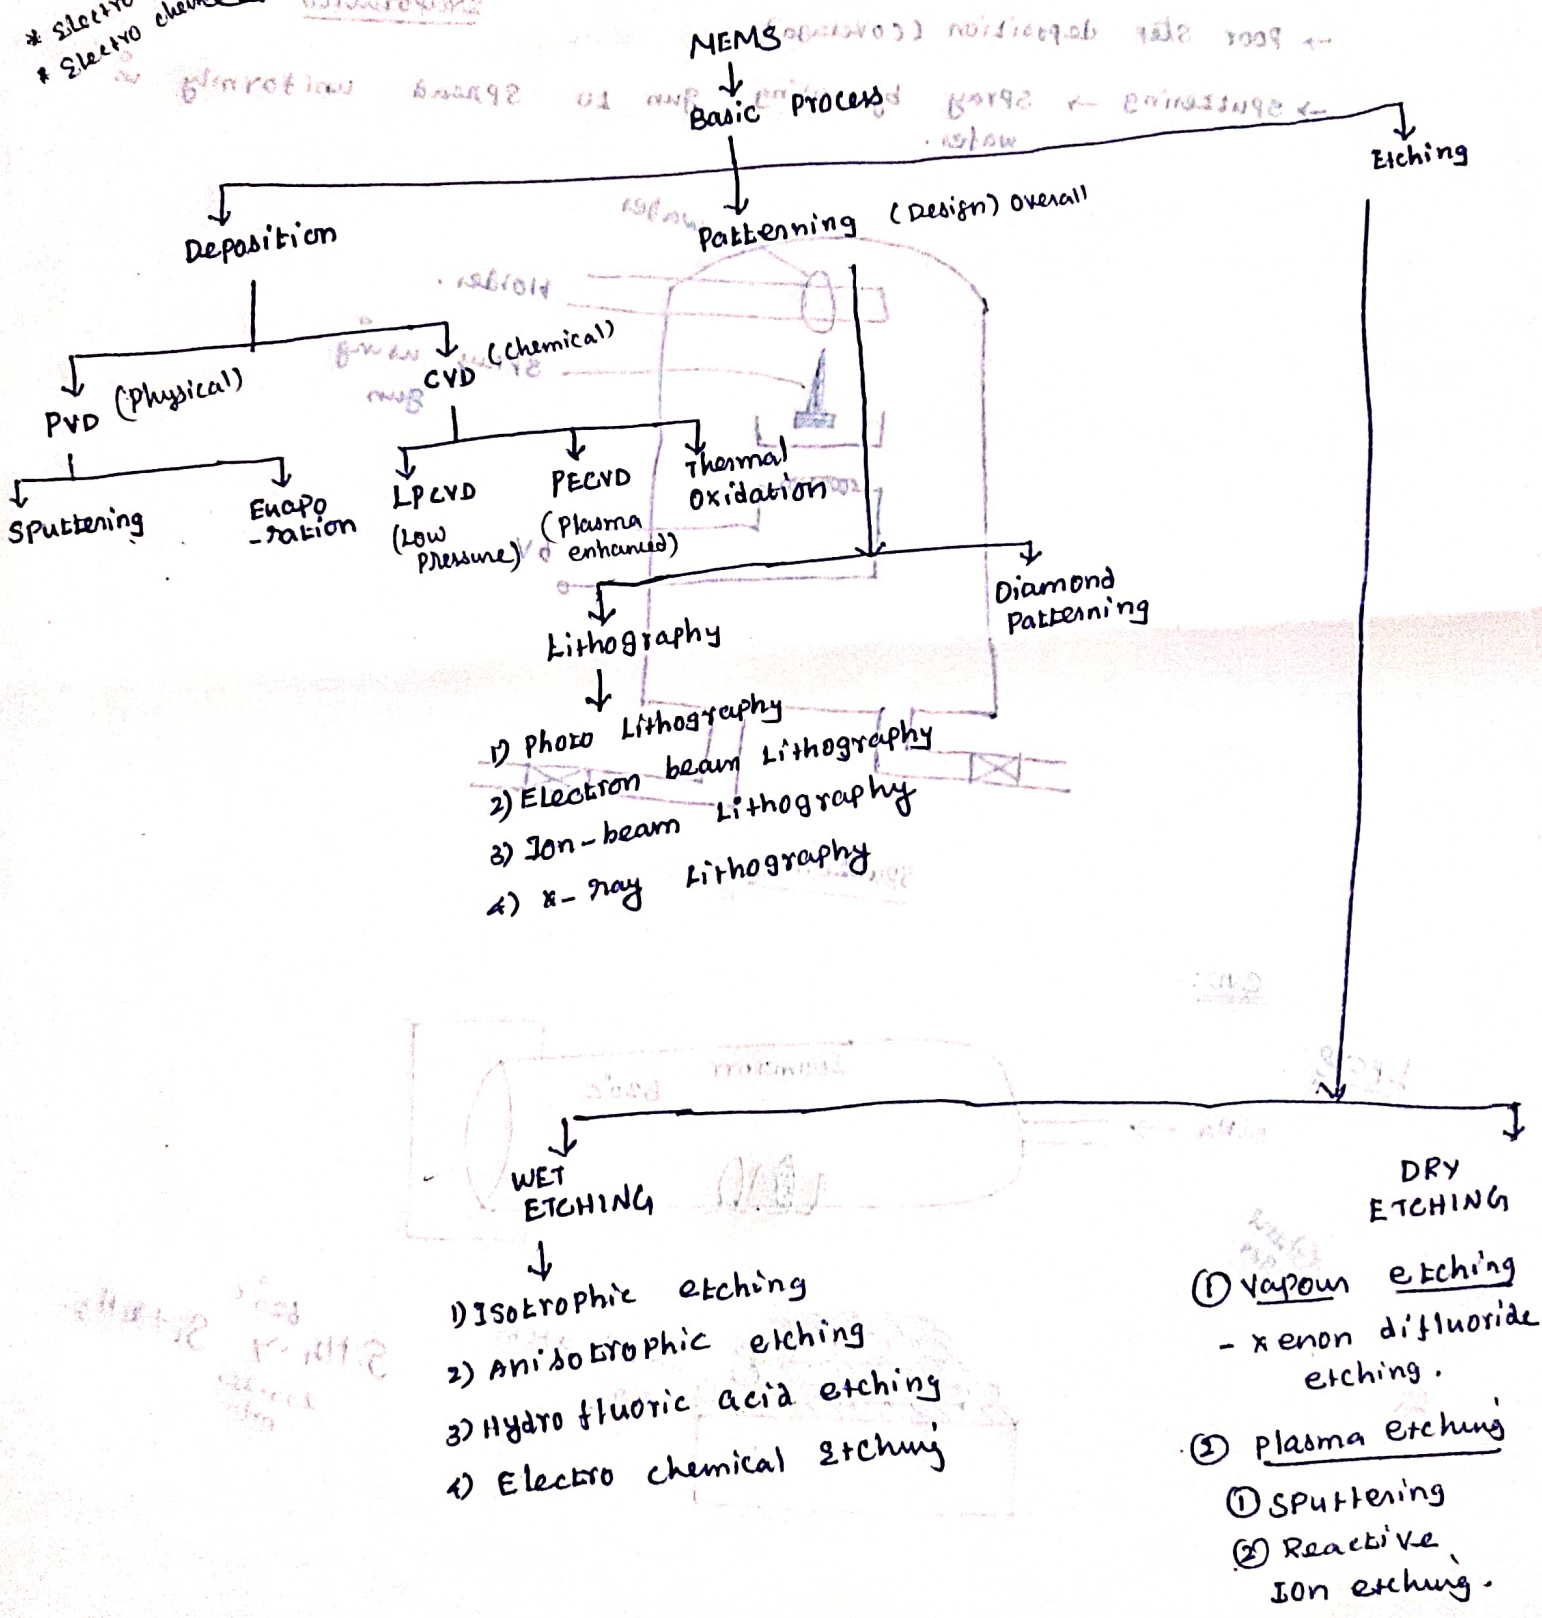 * Electro
* Electro
MEMS
Basic Process
Etching
Deposition
Patterning (Design) overall
PVD (Physical)
CVD (Chemical)
Sputtering
Evapo
-ration
LPCVD
(Low
Pressure)
PECVD
(Plasma
enhanced)
Thermal
Oxidation
Lithography
Diamond
Patterning
1) Photo Lithography
2) Electron beam Lithography
3) Ion-beam Lithography
4) x-ray Lithography
WET
ETCHING
1) Isotrophic etching
2) Anisotrophic etching
3) Hydro fluoric acid etching
4) Electro chemical Etching
DRY
ETCHING
① Vapour etching
- xenon difluoride
etching.
② Plasma etching
① Sputtering
② Reactive
Ion etching.